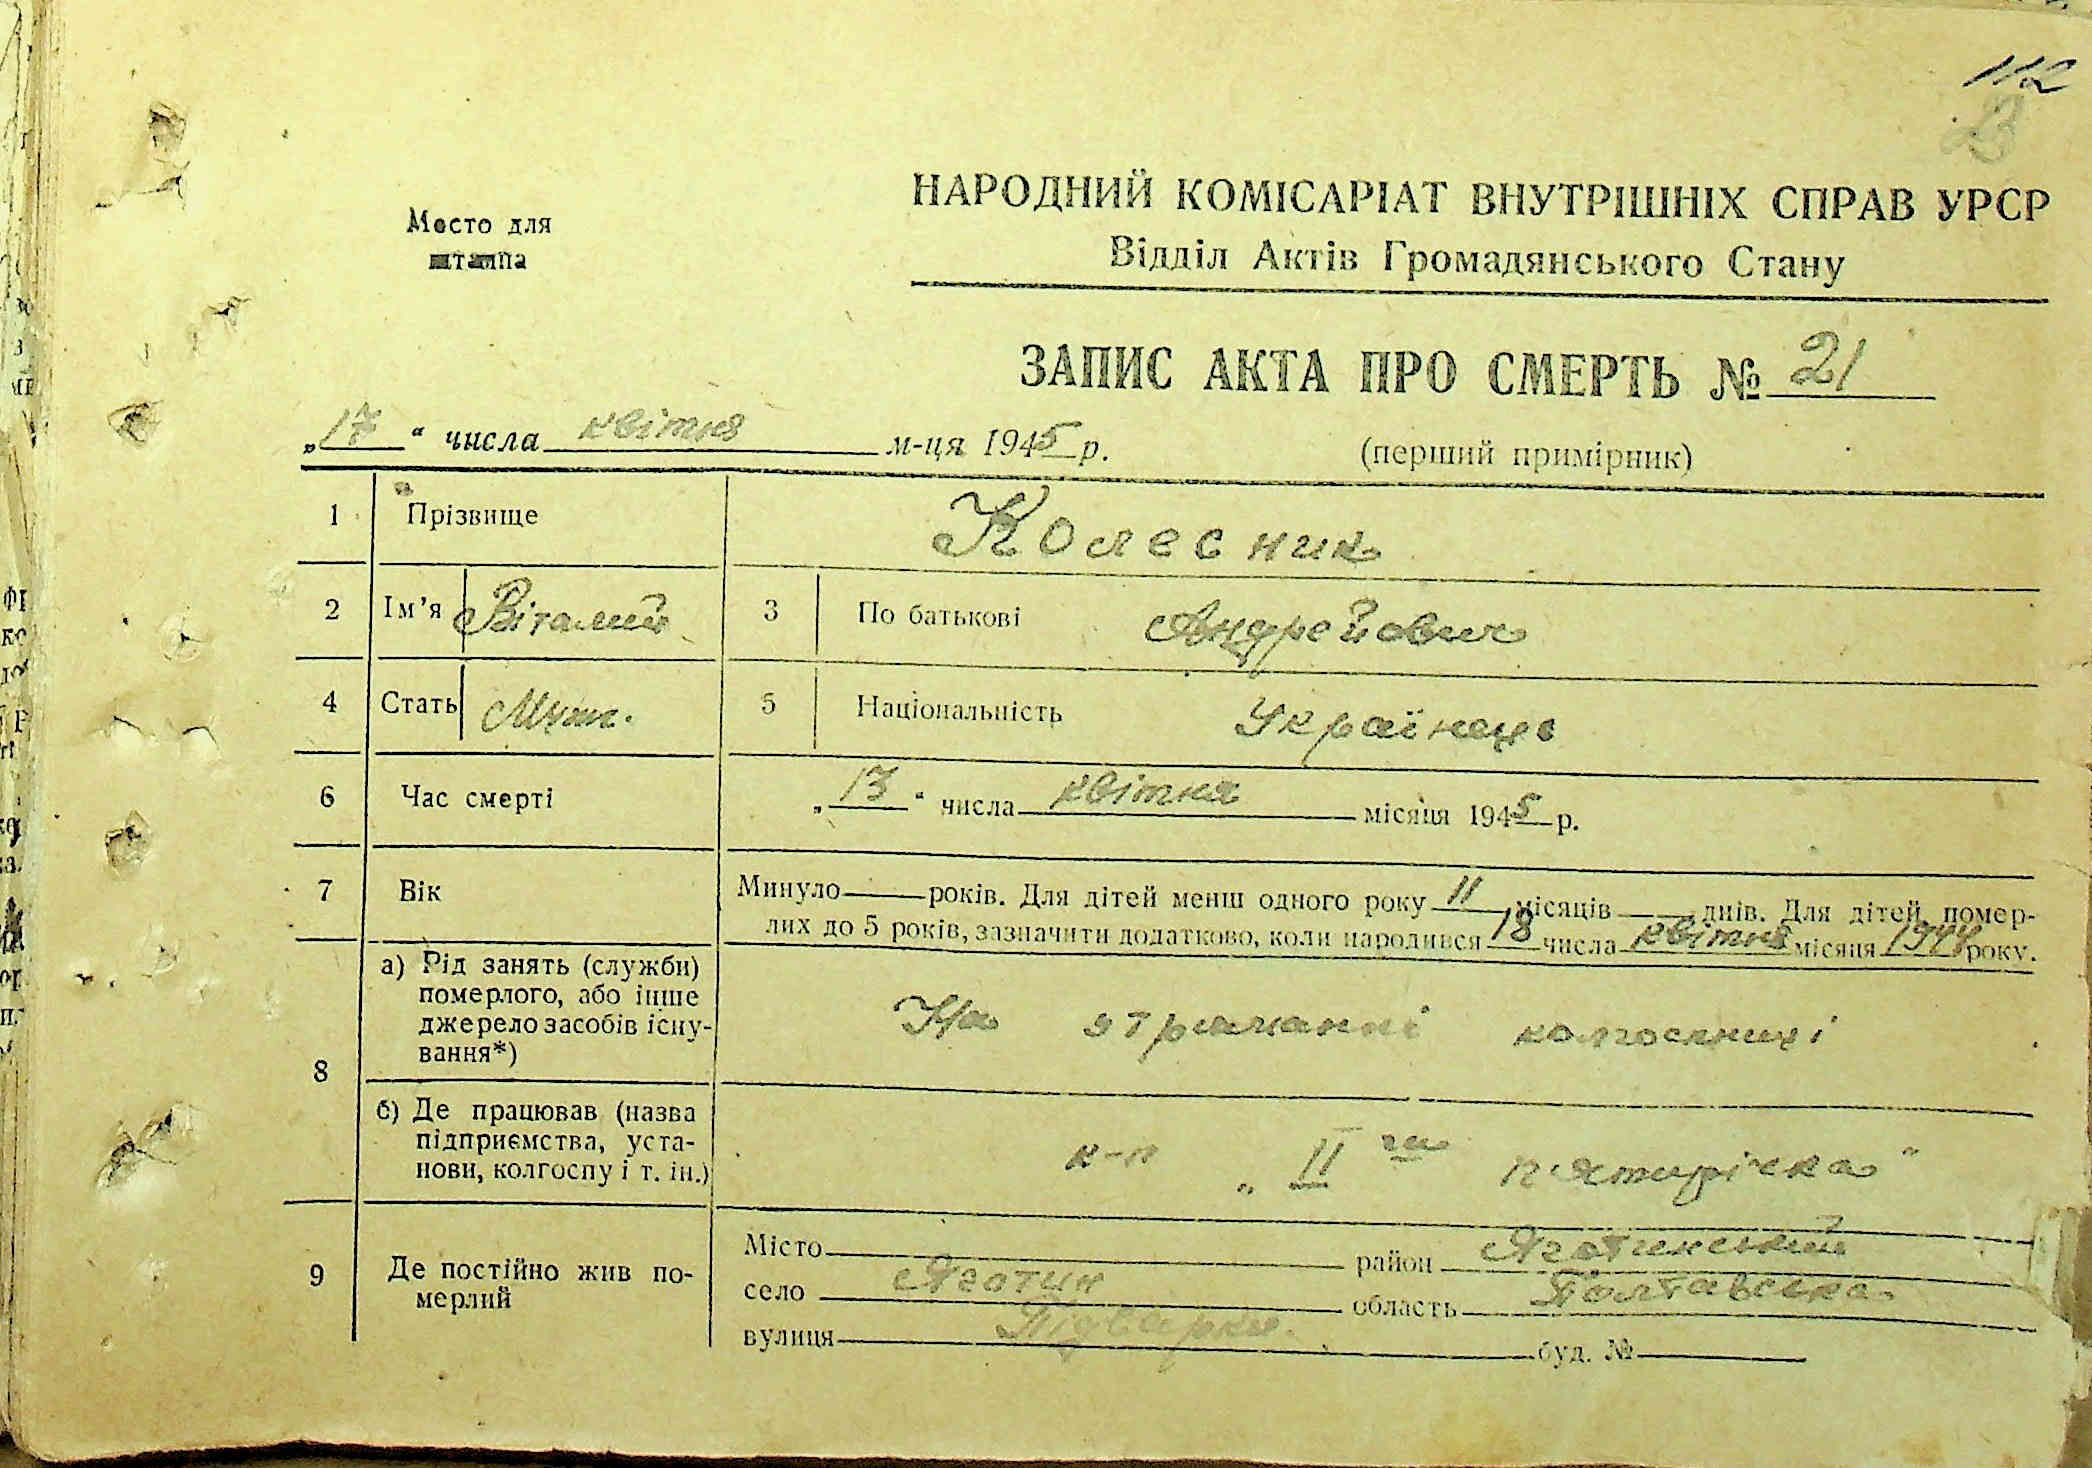 112
Место для
штампа
НАРОДНИЙ КОМІСАРІАТ ВНУТРІШНІХ СПРАВ УРСР
Відділ Актів Громадянського Стану
ЗАПИС АКТА ПРО СМЕРТЬ № 21
„17“ числа квітня м-ця 1945 р.
(перший примірник)
1 Прізвище Колесник
2 Ім’я Віталий 3 По батькові Андрейович
4 Стать Муж. 5 Національність Українець
6 Час смерті „13“ числа квітня місяця 1945 р.
7 Вік Минуло — років. Для дітей менш одного року 11 місяців — днів. Для дітей, помер-
лих до 5 років, зазначити додатково, коли народився 18 числа квітня місяця 1944 року.
8 а) Рід занять (служби)
померлого, або інше
джерело засобів існу-
вання*)
На утриманні колгоспниці
б) Де працював (назва
підприємства, уста-
нови, колгоспу і т. ін.)
к-п „II га пятирічка“
9 Де постійно жив по-
мерлий
Місто район Яготинський
село Яготин область Полтавська
вулиця Підварки. буд. №